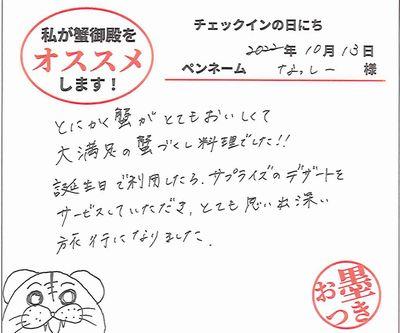 私が蟹御殿を
オススメ
します！
チェックインの日にち
2022年10月13日
ペンネーム なっしー 様
とにかく蟹がとてもおいしくて
大満足の蟹づくし料理でした!!
誕生日で利用したら、サプライズのデザートを
サービスしていただき、とても思い出深い
旅行になりました。
お墨つき